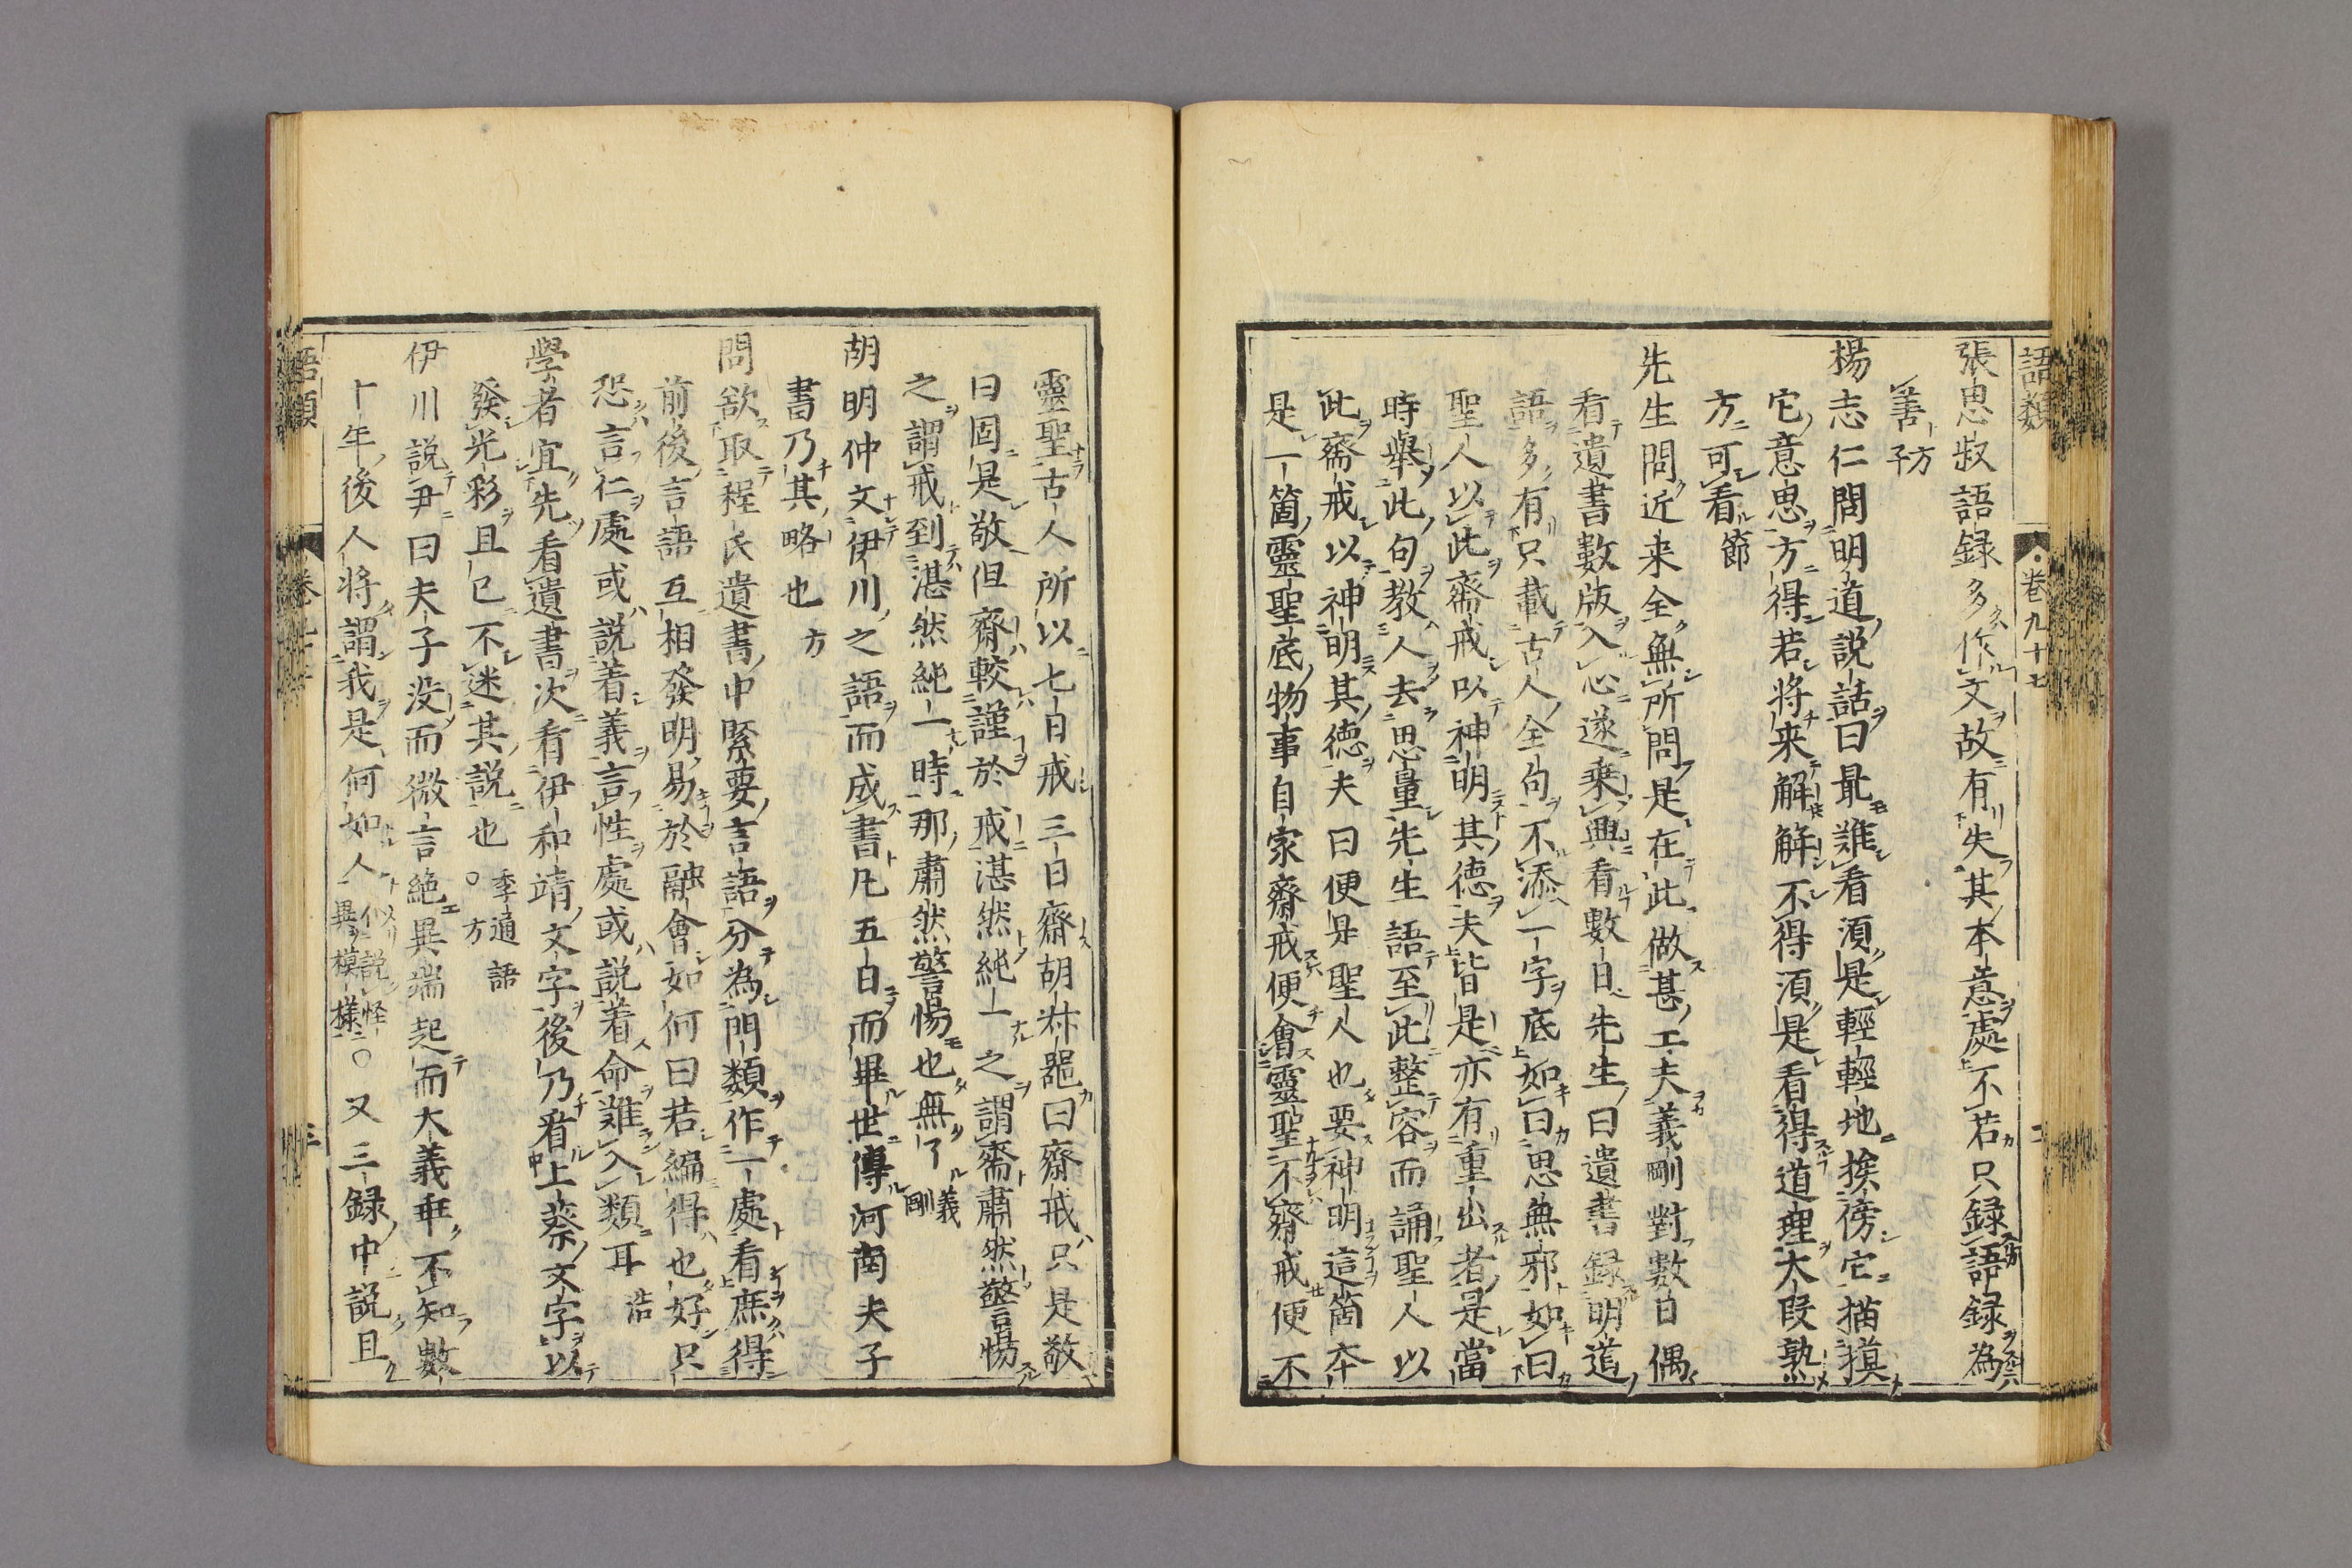 語類
卷九十七
二
張思叔語録多作文故有失其本意處不若只録語録為
善方子
楊志仁問明道説話曰最難看須是輕輕地挨傍它猫摸
它意思方得若將来解解不得須是看得道理大段熟
方可看節
先生問近来全無所問是在此做甚工夫義剛對數日偶
看遺書數版入心遂乘興看數日先生曰遺書録明道
語多有只載古人全句不添一字底如曰思無邪如曰
聖人以此齋戒以神明其德夫皆是亦有重出者是當
時舉此句教人去思量先生語至此整容而誦聖人以
此齋戒以神明其德夫曰便是聖人也要神明這箇本
是一箇靈聖底物事自家齋戒便會靈聖不齋戒便不
靈聖古人所以七日戒三日齋胡叔器曰齋戒只是敬
曰固是敬但齋較謹於戒湛然純一之謂齋肅然警惕
之謂戒到湛然純一時那肅然警惕也無了義剛
胡明仲文伊川之語而成書凡五日而畢世傳河南夫子
書乃其略也方
問欲取程氏遺書中緊要言語分為門類作一處看庶得
前後言語互相發明易於融會如何曰若編得也好只
恐言仁處或説着義言性處或説着命難入類耳浩
學者宜先看遺書次看伊和靖文字後乃看上蔡文字以
發光彩且已不迷其説也季通語○方
伊川説尹曰夫子没而微言絶異端起而大義乖不知數
十年後人將謂我是何如人似説怪異模様○又三録中説且
語類
三